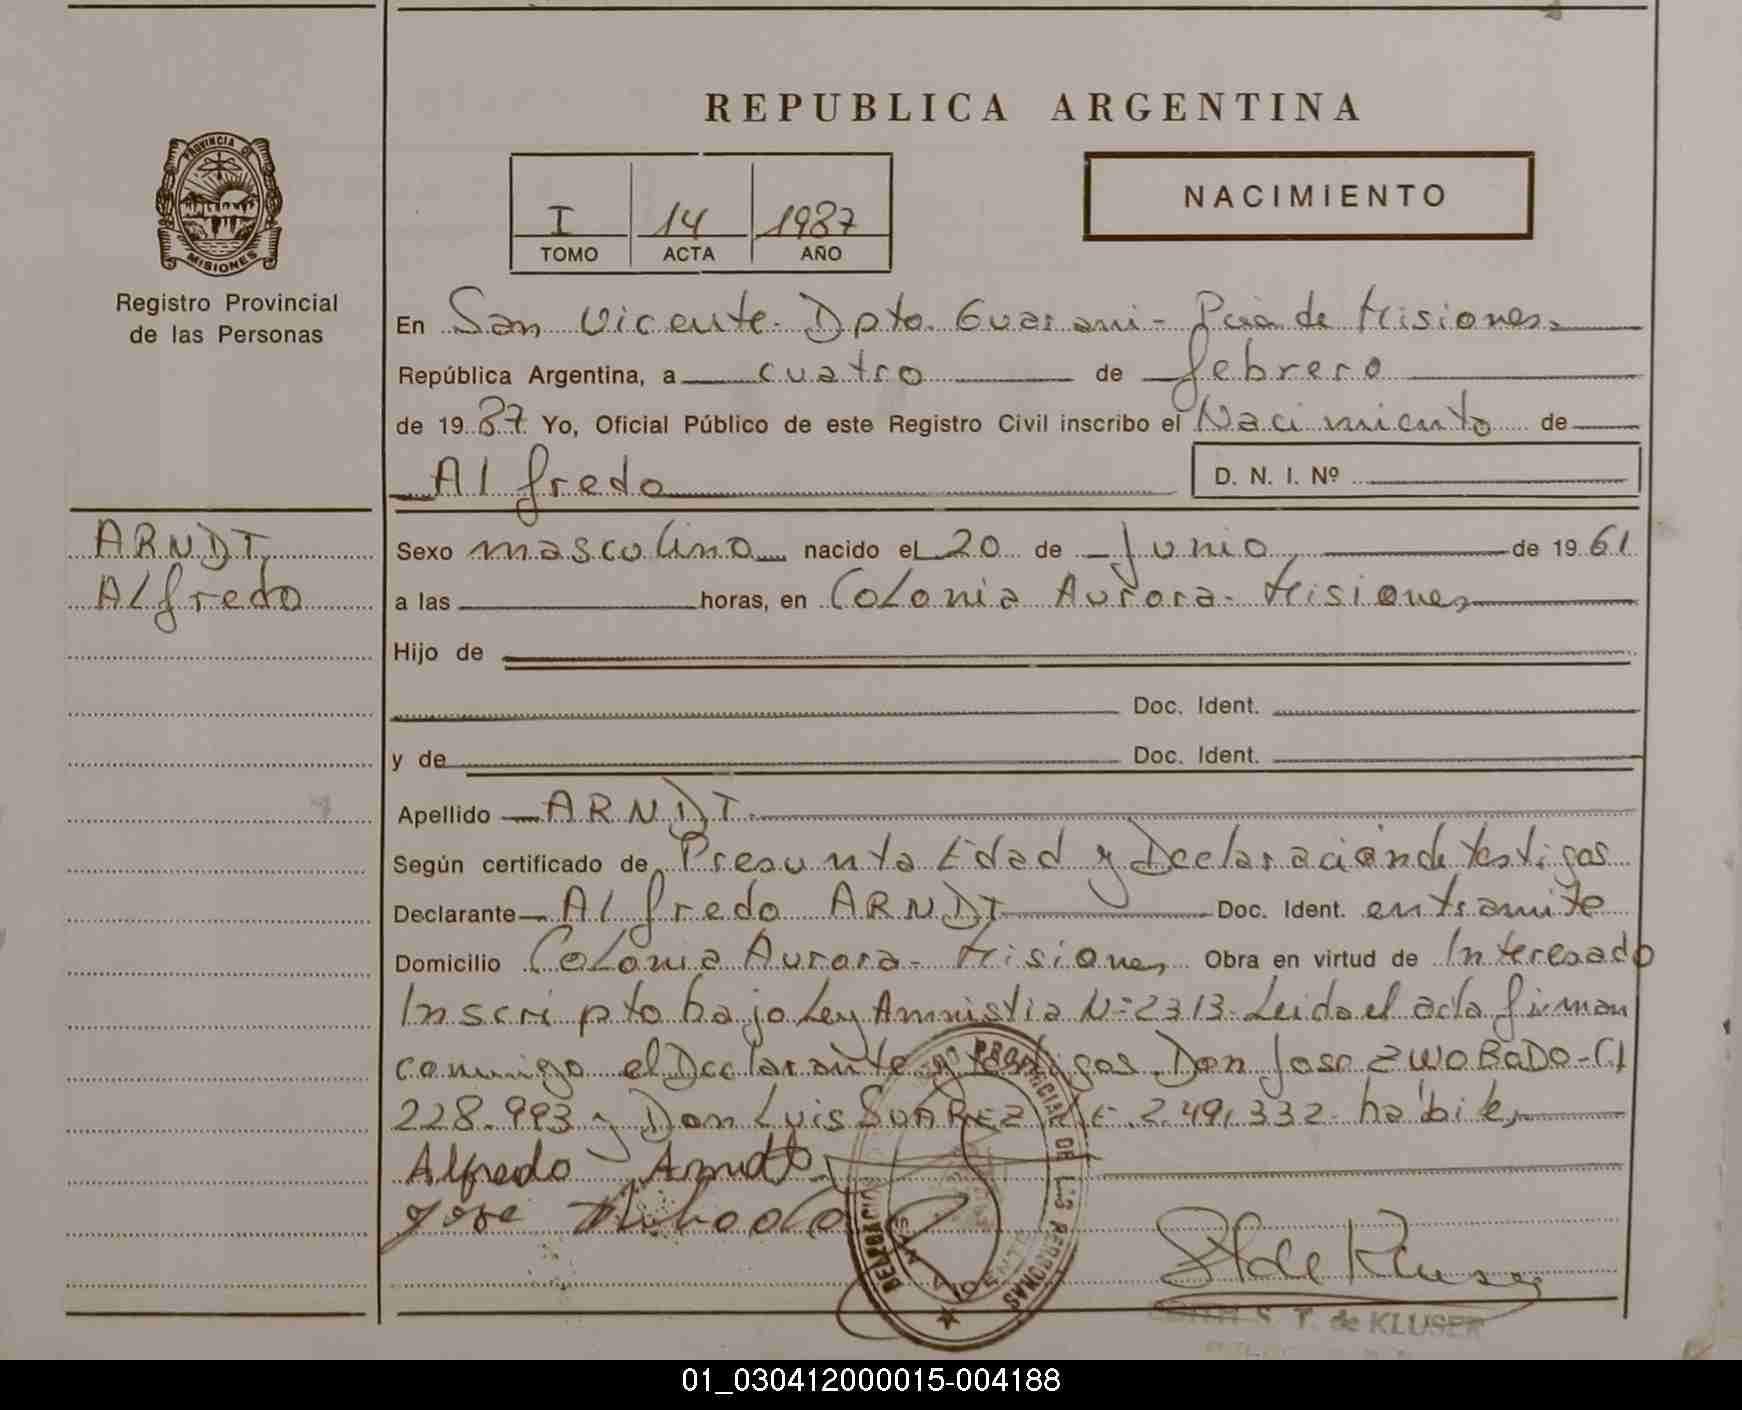 REPUBLICA ARGENTINA
PROVINCIA DE
MISIONES
Registro Provincial
de las Personas
I 14 1987
TOMO ACTA AÑO
NACIMIENTO
En San Vicente - Dpto. Guarani - Pcia de Misiones
República Argentina, a cuatro de febrero
de 1987 Yo, Oficial Público de este Registro Civil inscribo el Nacimiento de
Alfredo D. N. I. Nº
ARNDT,
Alfredo
Sexo masculino nacido el 20 de Junio de 1961
a las horas, en Colonia Aurora - Misiones
Hijo de
Doc. Ident.
y de Doc. Ident.
Apellido ARNDT.
Según certificado de Presunta Edad y Declaración de testigos
Declarante Alfredo ARNDT Doc. Ident. en tramite
Domicilio Colonia Aurora - Misiones Obra en virtud de Interesado
Inscripto bajo Ley Amnistia N=2313 - Leida el acta firman
conmigo el Declarante y testigos Don Jose ZWOBADO - C.I
228.993 y Don Luis SUAREZ L.E. 2.491.332 - habiles
Alfredo Arndt
Jose
PROVINCIAL DE LAS PERSONAS
DELEGACION
SAN VICENTE
S. T. de Kluser
S. T. de KLUSER
01_030412000015-004188